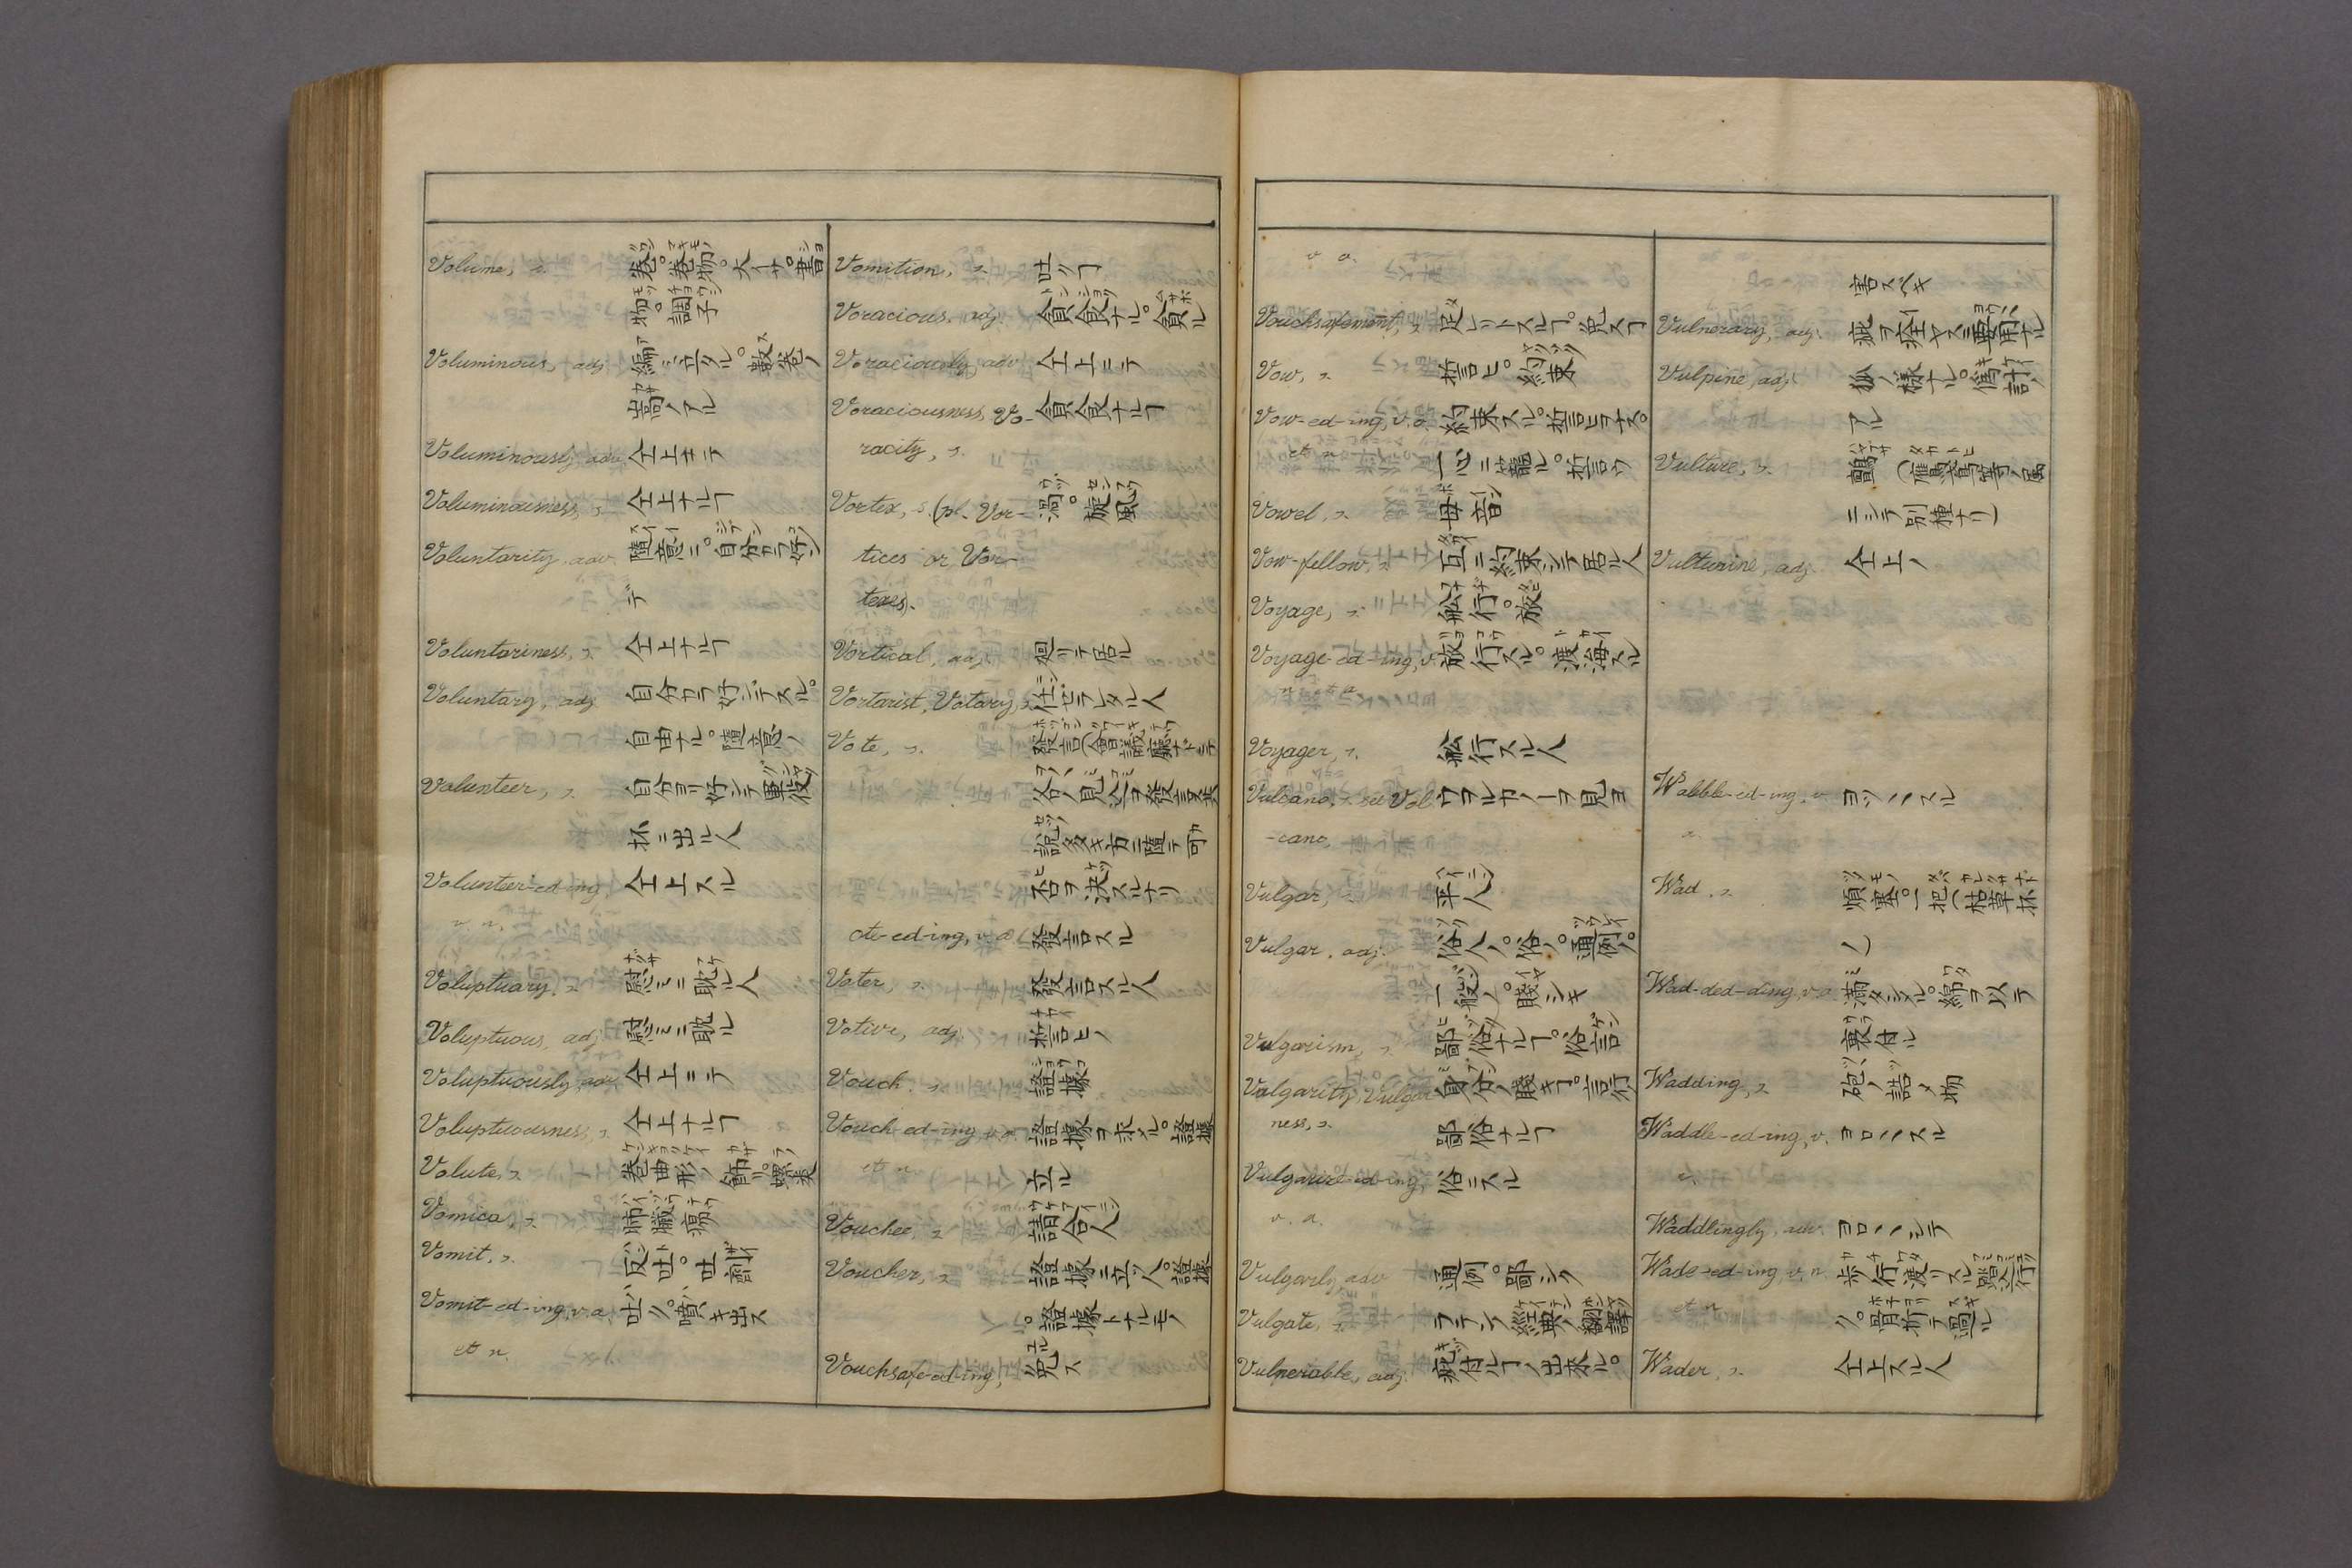 Volume, s. 巻。巻物。大サ。書
物。調子
Voluminous, adj 編ミ立タル。数巻ノ
嵩ノアル
Voluminously, adv 仝上キテ
Voluminousness, s. 仝上ナルヿ
Voluntarily, adv 随意ニ。自分カラ好ン
デ
Voluntariness, s. 仝上ナルヿ
Voluntary, adj 自分カラ好ンデスル。
自由ナル。随意ノ
Volunteer, s. 自分ヨリ好ンデ軍役
抔ニ出ル人
Volunteer-ed-ing, 仝上スル
v. n.
Voluptuary, s. 慰ミニ耽ル人
Voluptuous, adj 慰ミニ耽ル
Voluptuously, adv 仝上ニテ
Voluptuousness, s. 仝上ナルヿ
Volute, s. 巻曲形ノ飾リ。螺類
Vomica, s. 肺臓瘍
Vomit, s. 反吐。吐剤
Vomit-ed-ing, v. a. 吐ク。噴キ出ス
et n.
Vomition, s. 吐クヿ
Voracious, adj. 貪食ナル。貪ル
Voraciously, adv 仝上ニテ
Voraciousness, Vo- 貪食ナルヿ
racity, s.
Vortex, s. (pl. Vor- 渦。旋風
tices or Vor-
texes).
Vortical, adj. 廻リテ居ル
Vortarist, Votary, s. 任ゼラレタル人
Vote, s. 發言(會議廳ナドニテ
各ノ見込ヲ發言シ其
説ノ多キ方ニ随テ可
否ヲ決スルナリ
ote-ed-ing, v. a. 發言スル
Voter, s. 發言スル人
Votive, adj. 誓ヒノ
Vouch, s. 證據
Vouch-ed-ing, v. a. 證據ヲ求メル。證據
et n. 立ル
Vouchee, s. 請合人
Voucher, s. 證據ニ立ツ人。證據
。證據トナルモノ
Vouchsafe-ed-ing, 免ス
v. a.
Vouchsafement, s. 足レリトスルヿ。免スヿ
Vow, s. 誓ヒ。約束
Vow-ed-ing, v. a. 約束スル。誓ヒヲナス。
et n. 一心ニ籠ル。誓ウ
Vowel, s. 母音
Vow-fellow, s. 互ニ約束シテ居ル人
Voyage, s. 舩行。旅
Voyage-ed-ing, v. 旅行スル。渡海スル
n. et a.
Voyager, s. 舩行スル人
Vulcano, s. see Vol ウヲルカノーヲ見ヨ
-cano,
Vulgar, s. 平人
Vulgar, adj. 俗人ノ。俗ノ。通例ノ。
一般ノ。賤シキ
Vulgarism, s. 鄙俗ナルヿ。俗言
Vulgarity, Vulgar 身分ノ賤キヿ。言行
ness, s. 鄙俗ナルヿ
Vulgarize-ed-ing, 俗ニスル
v. a.
Vulgarly, adv 通例。鄙シク
Vulgate, s. ラテンノ經典ノ翻譯
Vulnerable, adj. 疵付ルヿノ出来ル。
害スベキ
Vulnerary, adj. 疵ヲ痊ヤスニ要用ナル
Vulpine, adj. 狐ノ様ナル。偽計ノ
アル
Vulture, s. 鸇(鷹鳶等ノ属
ニシテ別種ナリ)
Vulturine, adj. 仝上ノ
Wabble-ed-ing, v. ヨロヽヽスル
n.
Wad, s. 填塞。一把(枯草抔
ノ)
Wad-ded-ding, v. a. 満タシメル。綿ヲ以テ
裏付ル
Wadding, s. 砲ノ詰メ物
Waddle-ed-ing, v. ヨロヽヽスル
n.
Waddlingly, adv. ヨロヽヽシテ
Wade-ed-ing, v. n. 歩行渡リスル。踏込行
et a. ク。骨折テ過ル
Wader, s. 仝上スル人